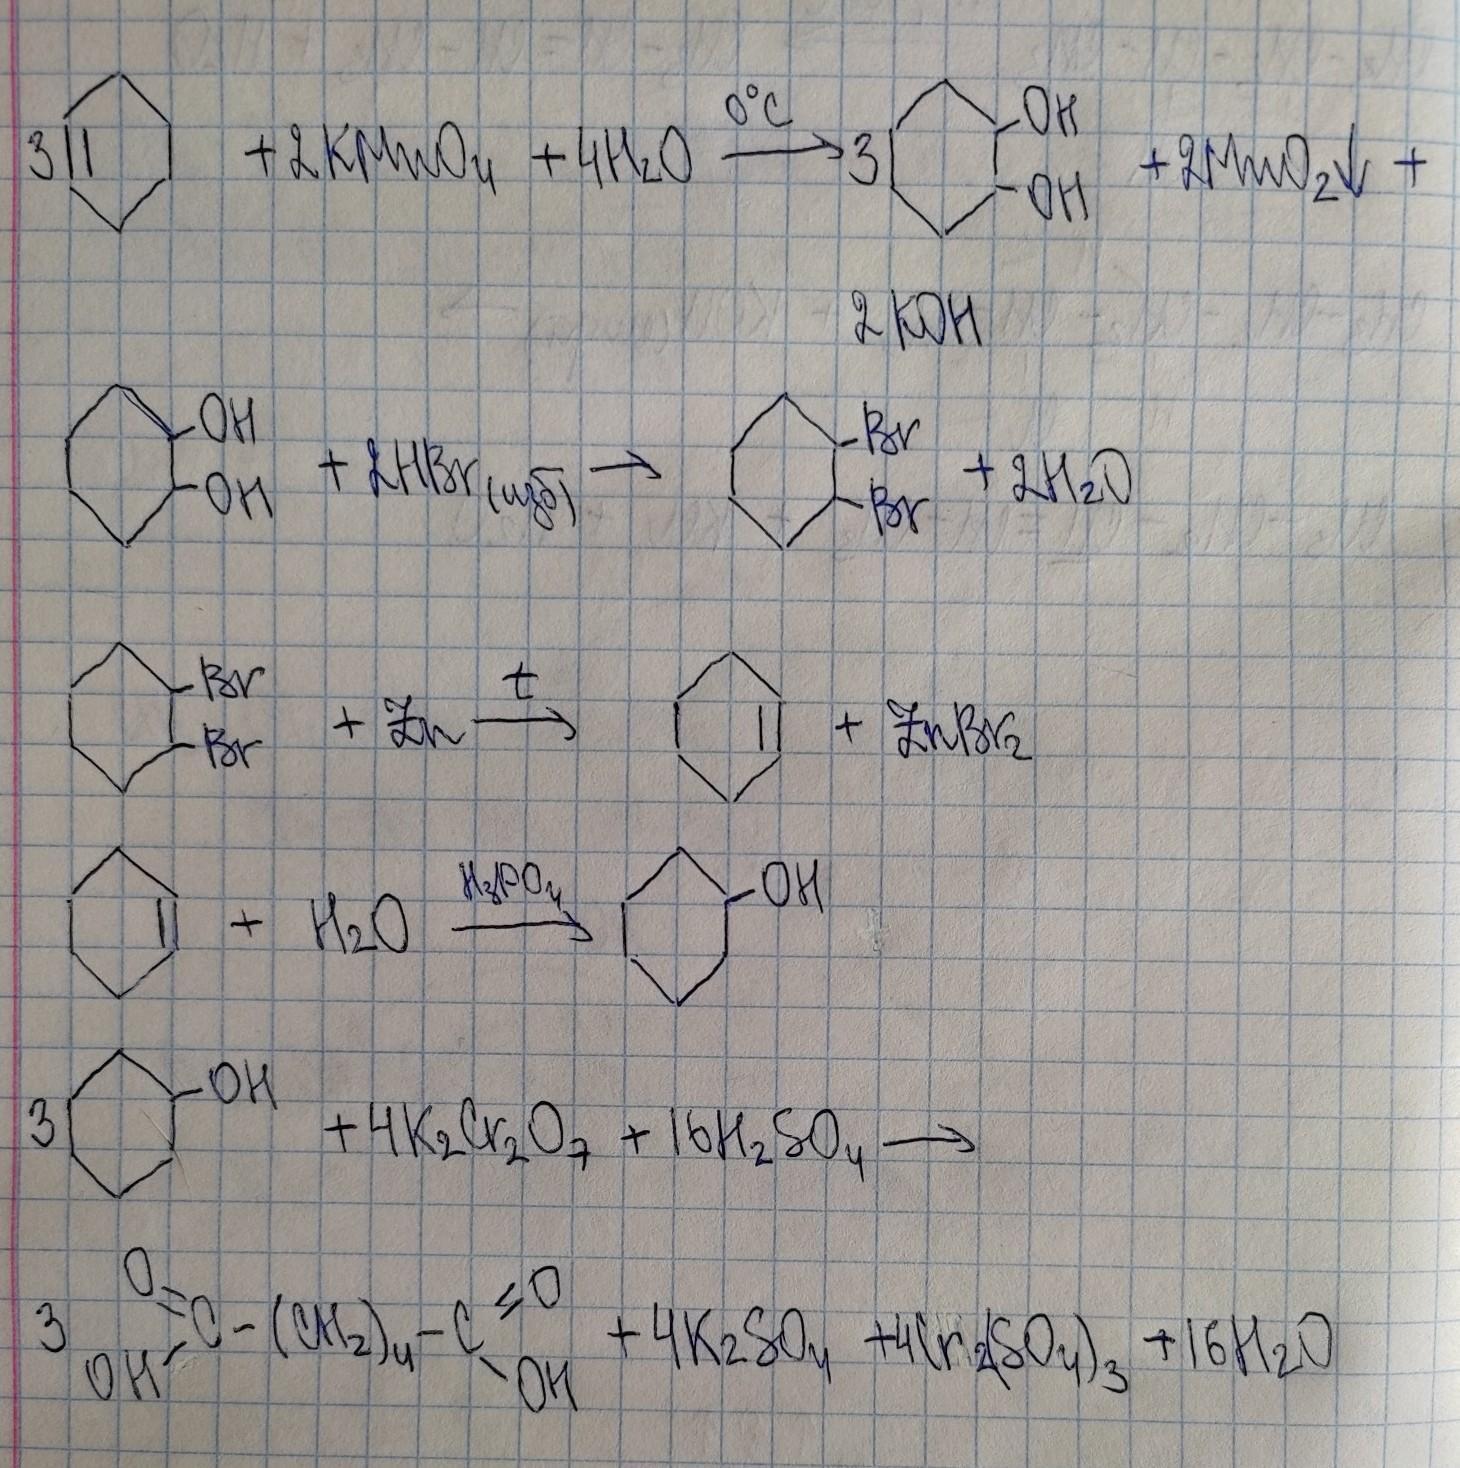 3 + 2KMnO4 + 4H2O 0°C → 3 OH OH + 2MnO2↓ +
2KOH
OH OH + 2HBr(изб) → Br Br + 2H2O
Br Br + Zn t → + ZnBr2
+ H2O H3PO4 → OH
3 OH + 4K2Cr2O7 + 16H2SO4 →
3 O=C(OH)-(CH2)4-C(=O)OH + 4K2SO4 + 4Cr2(SO4)3 + 16H2O